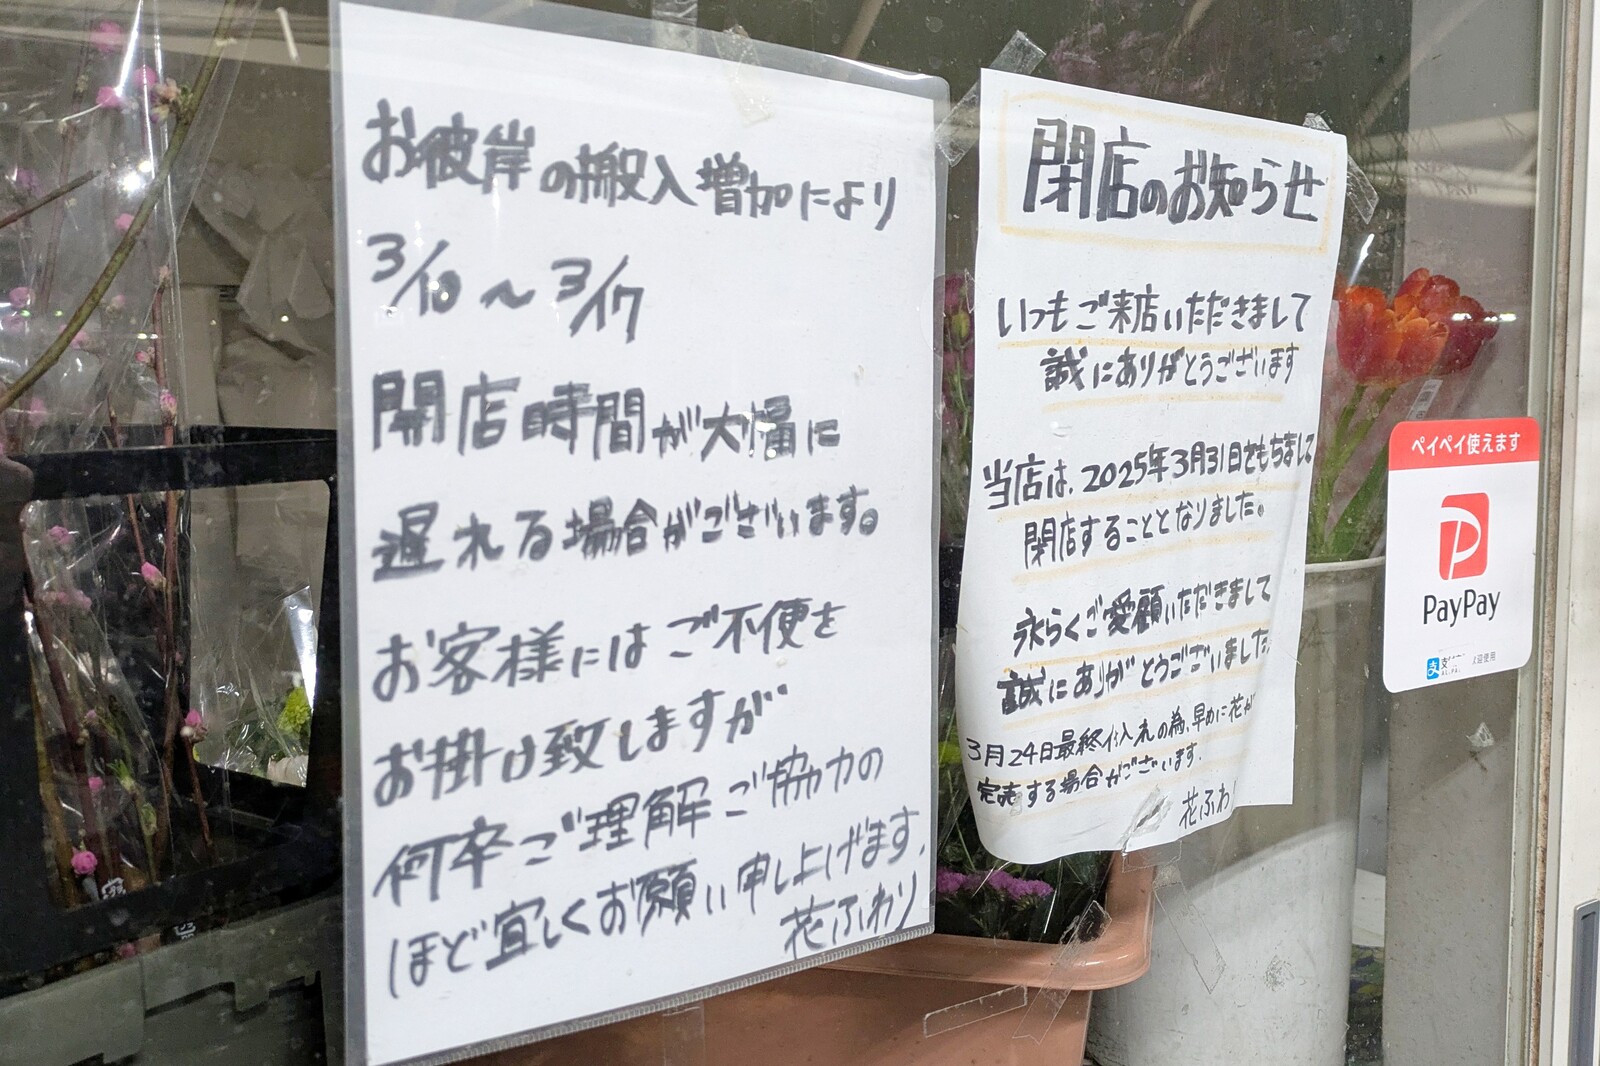 お彼岸の搬入増加により
3/10〜3/17
開店時間が大幅に
遅れる場合がございます。
お客様にはご不便を
お掛け致しますが
何卒ご理解ご協力の
ほど宜しくお願い申し上げます.
花ふわり
閉店のお知らせ
いつもご来店いただきまして
誠にありがとうございます
当店は、2025年3月31日をもちまして
閉店することとなりました。
永らくご愛顧いただきまして
誠にありがとうございました
3月24日最終仕入れの為、早めに花が
完売する場合がございます.
花ふわ
ペイペイ使えます
PayPay